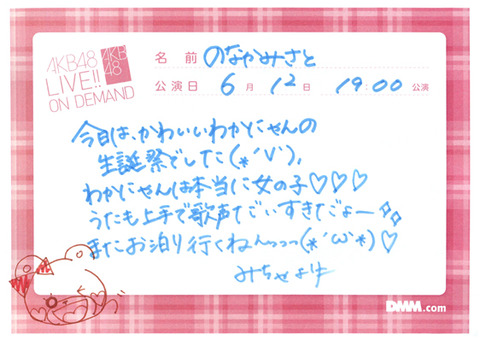 AKB48
LIVE!!
ON DEMAND
AKB
48
名前 のなかみさと
公演日 6月 12日 19:00公演
今日は、かわいいわかにゃんの
生誕祭でした(*'V'),
わかにゃんは本当に女の子♡♡♡
うたも上手で歌声だいすきだよー
またお泊り行くねんっっっ(*'ω'*)♡
みちゃより
DMM.com